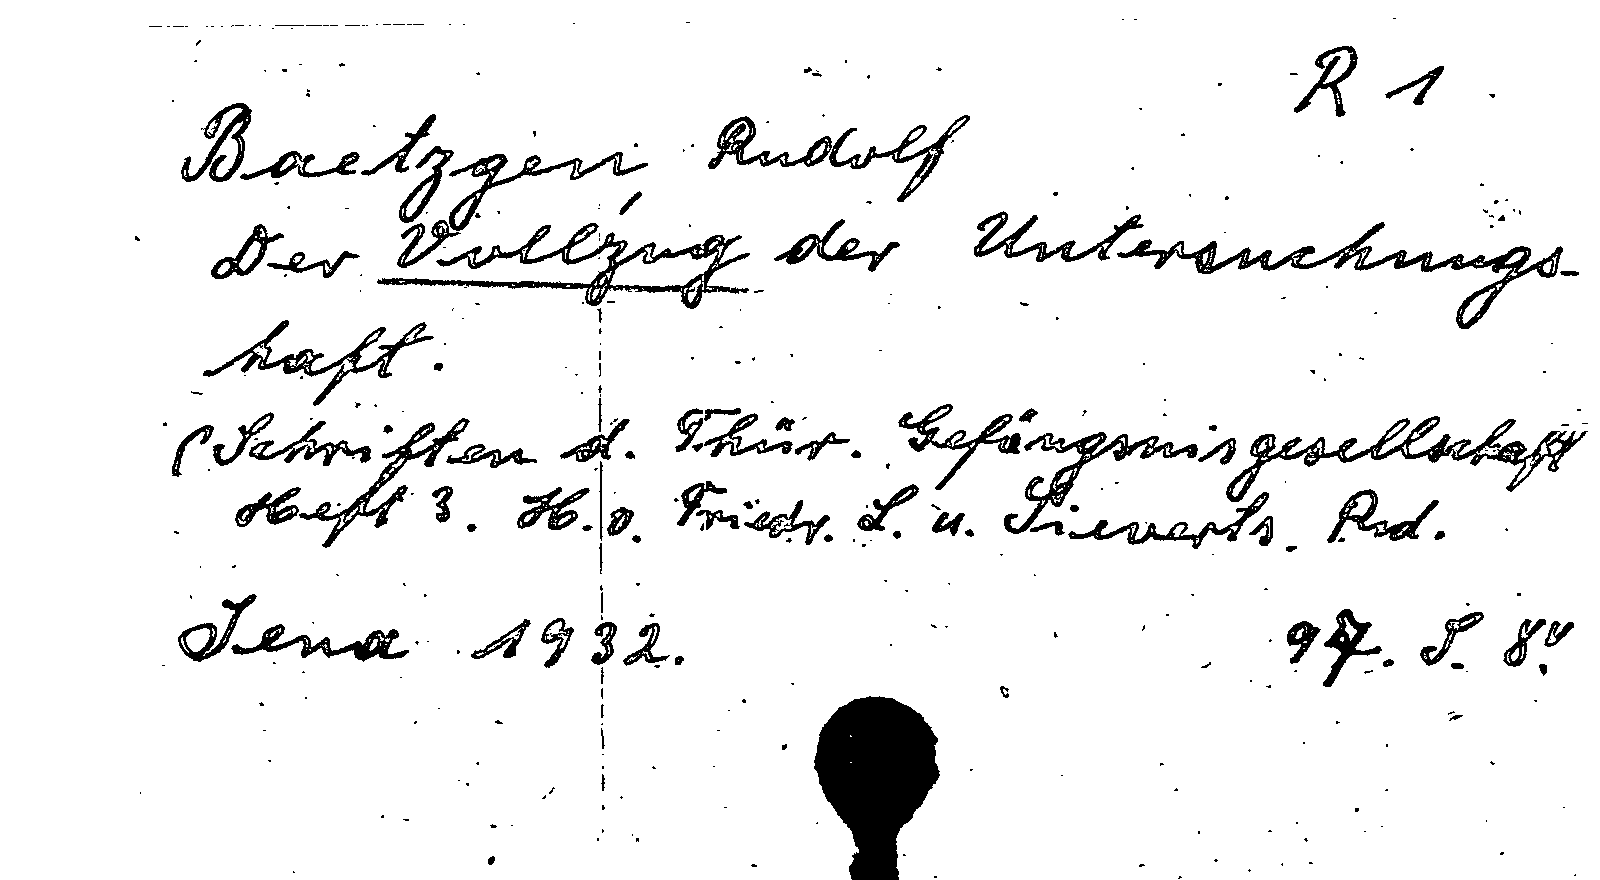 R 1
Baetzgen, Rudolf
Der Vollzug der Untersuchungs-
haft.
(Schriften d. Thür. Gefängnisgesellschaft
Heft 3. H. v. Friedr. L. u. Sieverts. Rud.
Jena 1932. 97. S. 8º.